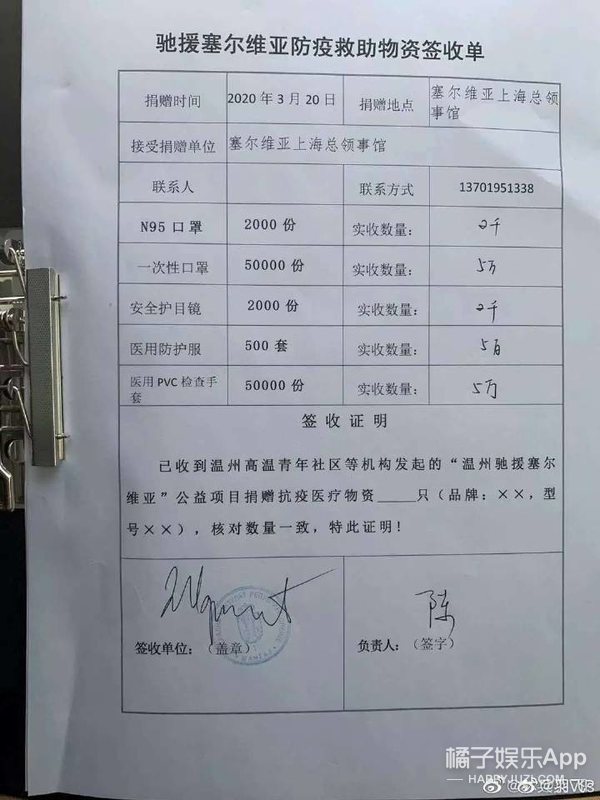 驰援塞尔维亚防疫救助物资签收单
捐赠时间 2020年3月20日 捐赠地点 塞尔维亚上海总领
事馆
接受捐赠单位 塞尔维亚上海总领事馆
联系人 联系方式 13701951338
N95口罩 2000份 实收数量： 2千
一次性口罩 50000份 实收数量： 5万
安全护目镜 2000份 实收数量： 2千
医用防护服 500套 实收数量： 5百
医用PVC检查手
套 50000份 实收数量： 5万
签收证明
已收到温州高温青年社区等机构发起的“温州驰援塞尔
维亚”公益项目捐赠抗疫医疗物资_____只（品牌：××，型
号××），核对数量一致，特此证明！
陈
签收单位：（盖章） 负责人：（签字）
橘子娱乐App
HAPPYJUZI.COM